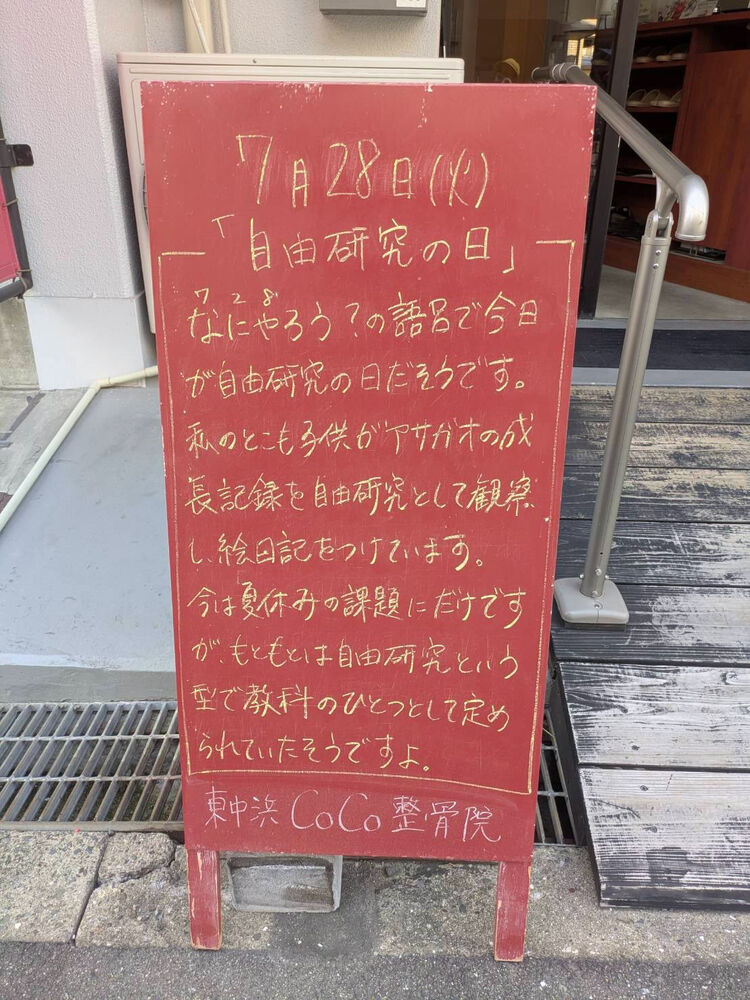 7月28日(火)
「自由研究の日」
7 2 8
なにやろう？の語呂で今日
が自由研究の日だそうです。
私のとこも子供がアサガオの成
長記録を自由研究として観察
し、絵日記をつけています。
今は夏休みの課題にだけです
が、もともとは自由研究という
型で教科のひとつとして定め
られていたそうですよ。
東中浜 CoCo 整骨院